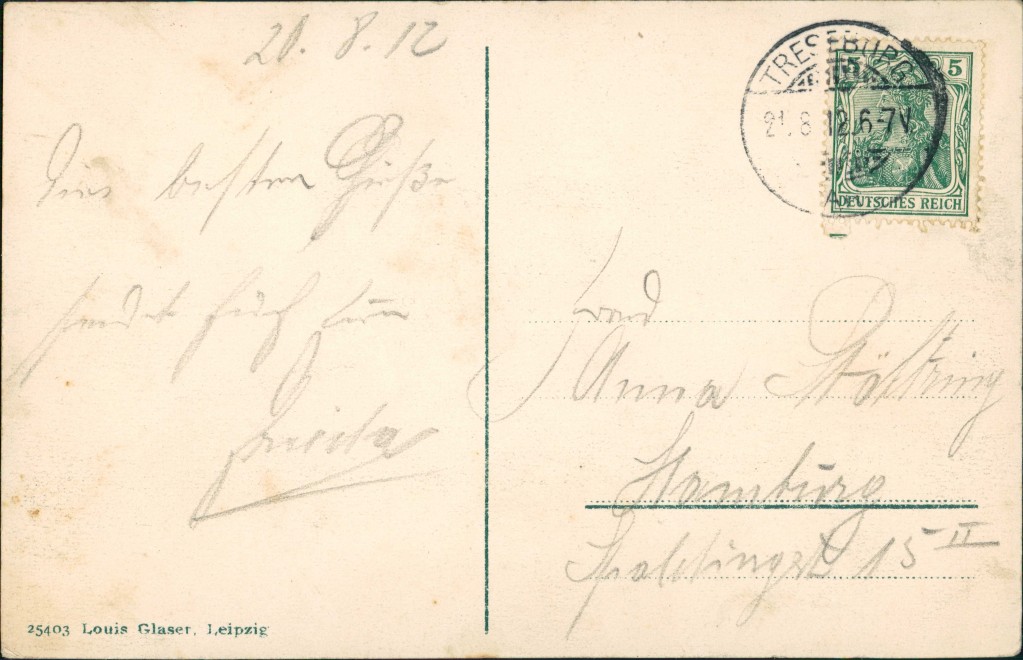 20. 8. 12
besten Grüße
sendet Euch
Frieda
25403 Louis Glaser, Leipzig
TRESEBURG
21.8.12.6-7V
5 5
DEUTSCHES REICH
Anna Stöltzing
Hamburg
Spaldingstr 15 II